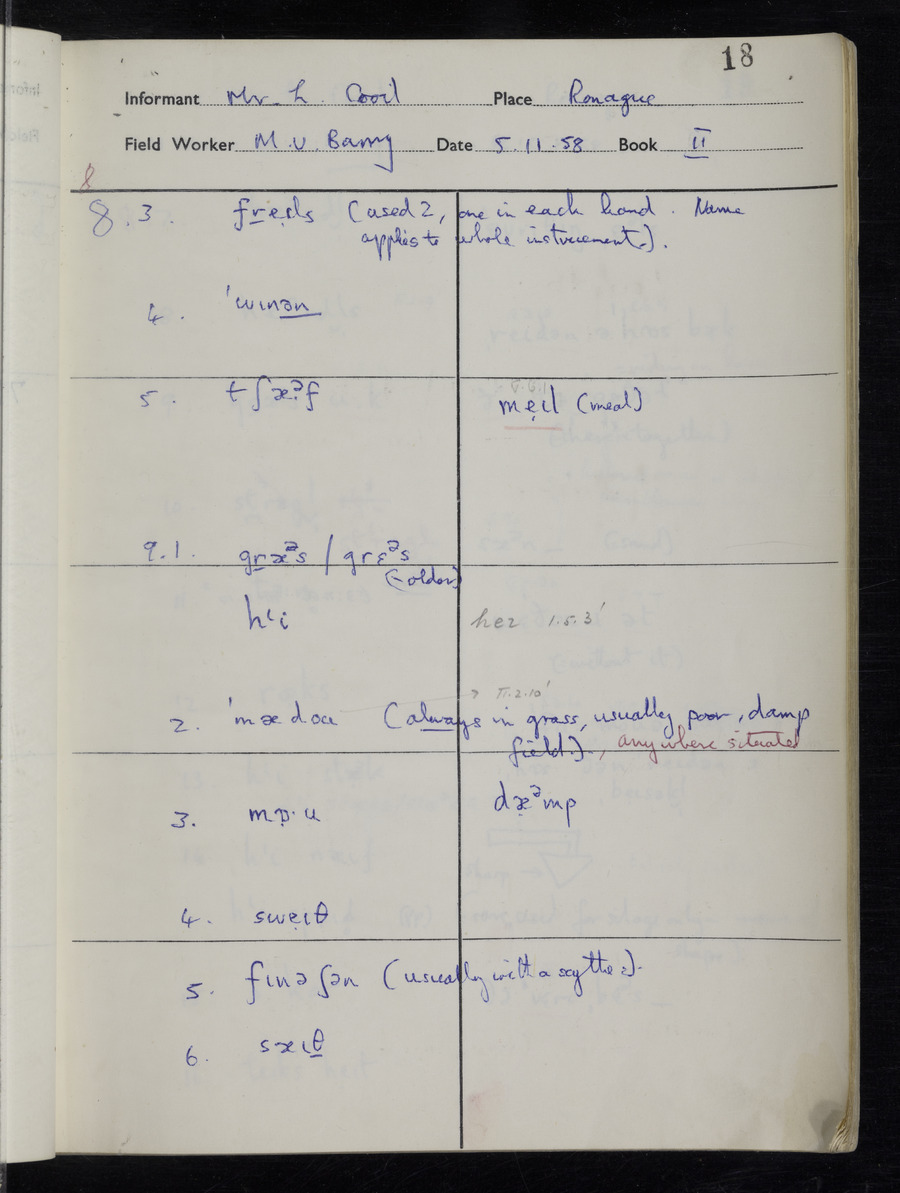 18
Informant Mr. L. Cooil Place Ronague
Field Worker M.V. Barry Date 5.11.58 Book II
8
8.3. fre̩ɪls (used 2, one in each hand. Name
applies to whole instrument.).
4. 'wɪnən
5. tʃæ̣ᵊf me̩ɪl (meal)
9.1. græᵊs / grɛᵊs
(-older)
hʻi her 1.5.3'
→ II.2.10'
2. 'mædou (always in grass, usually poor, damp
field)., anywhere situated
3. mɒ̣·u dæ̣ᵊmp
4. swe̩ɪθ
5. fɪnəʃən (usually with a scythe:).
6. sæɪθ